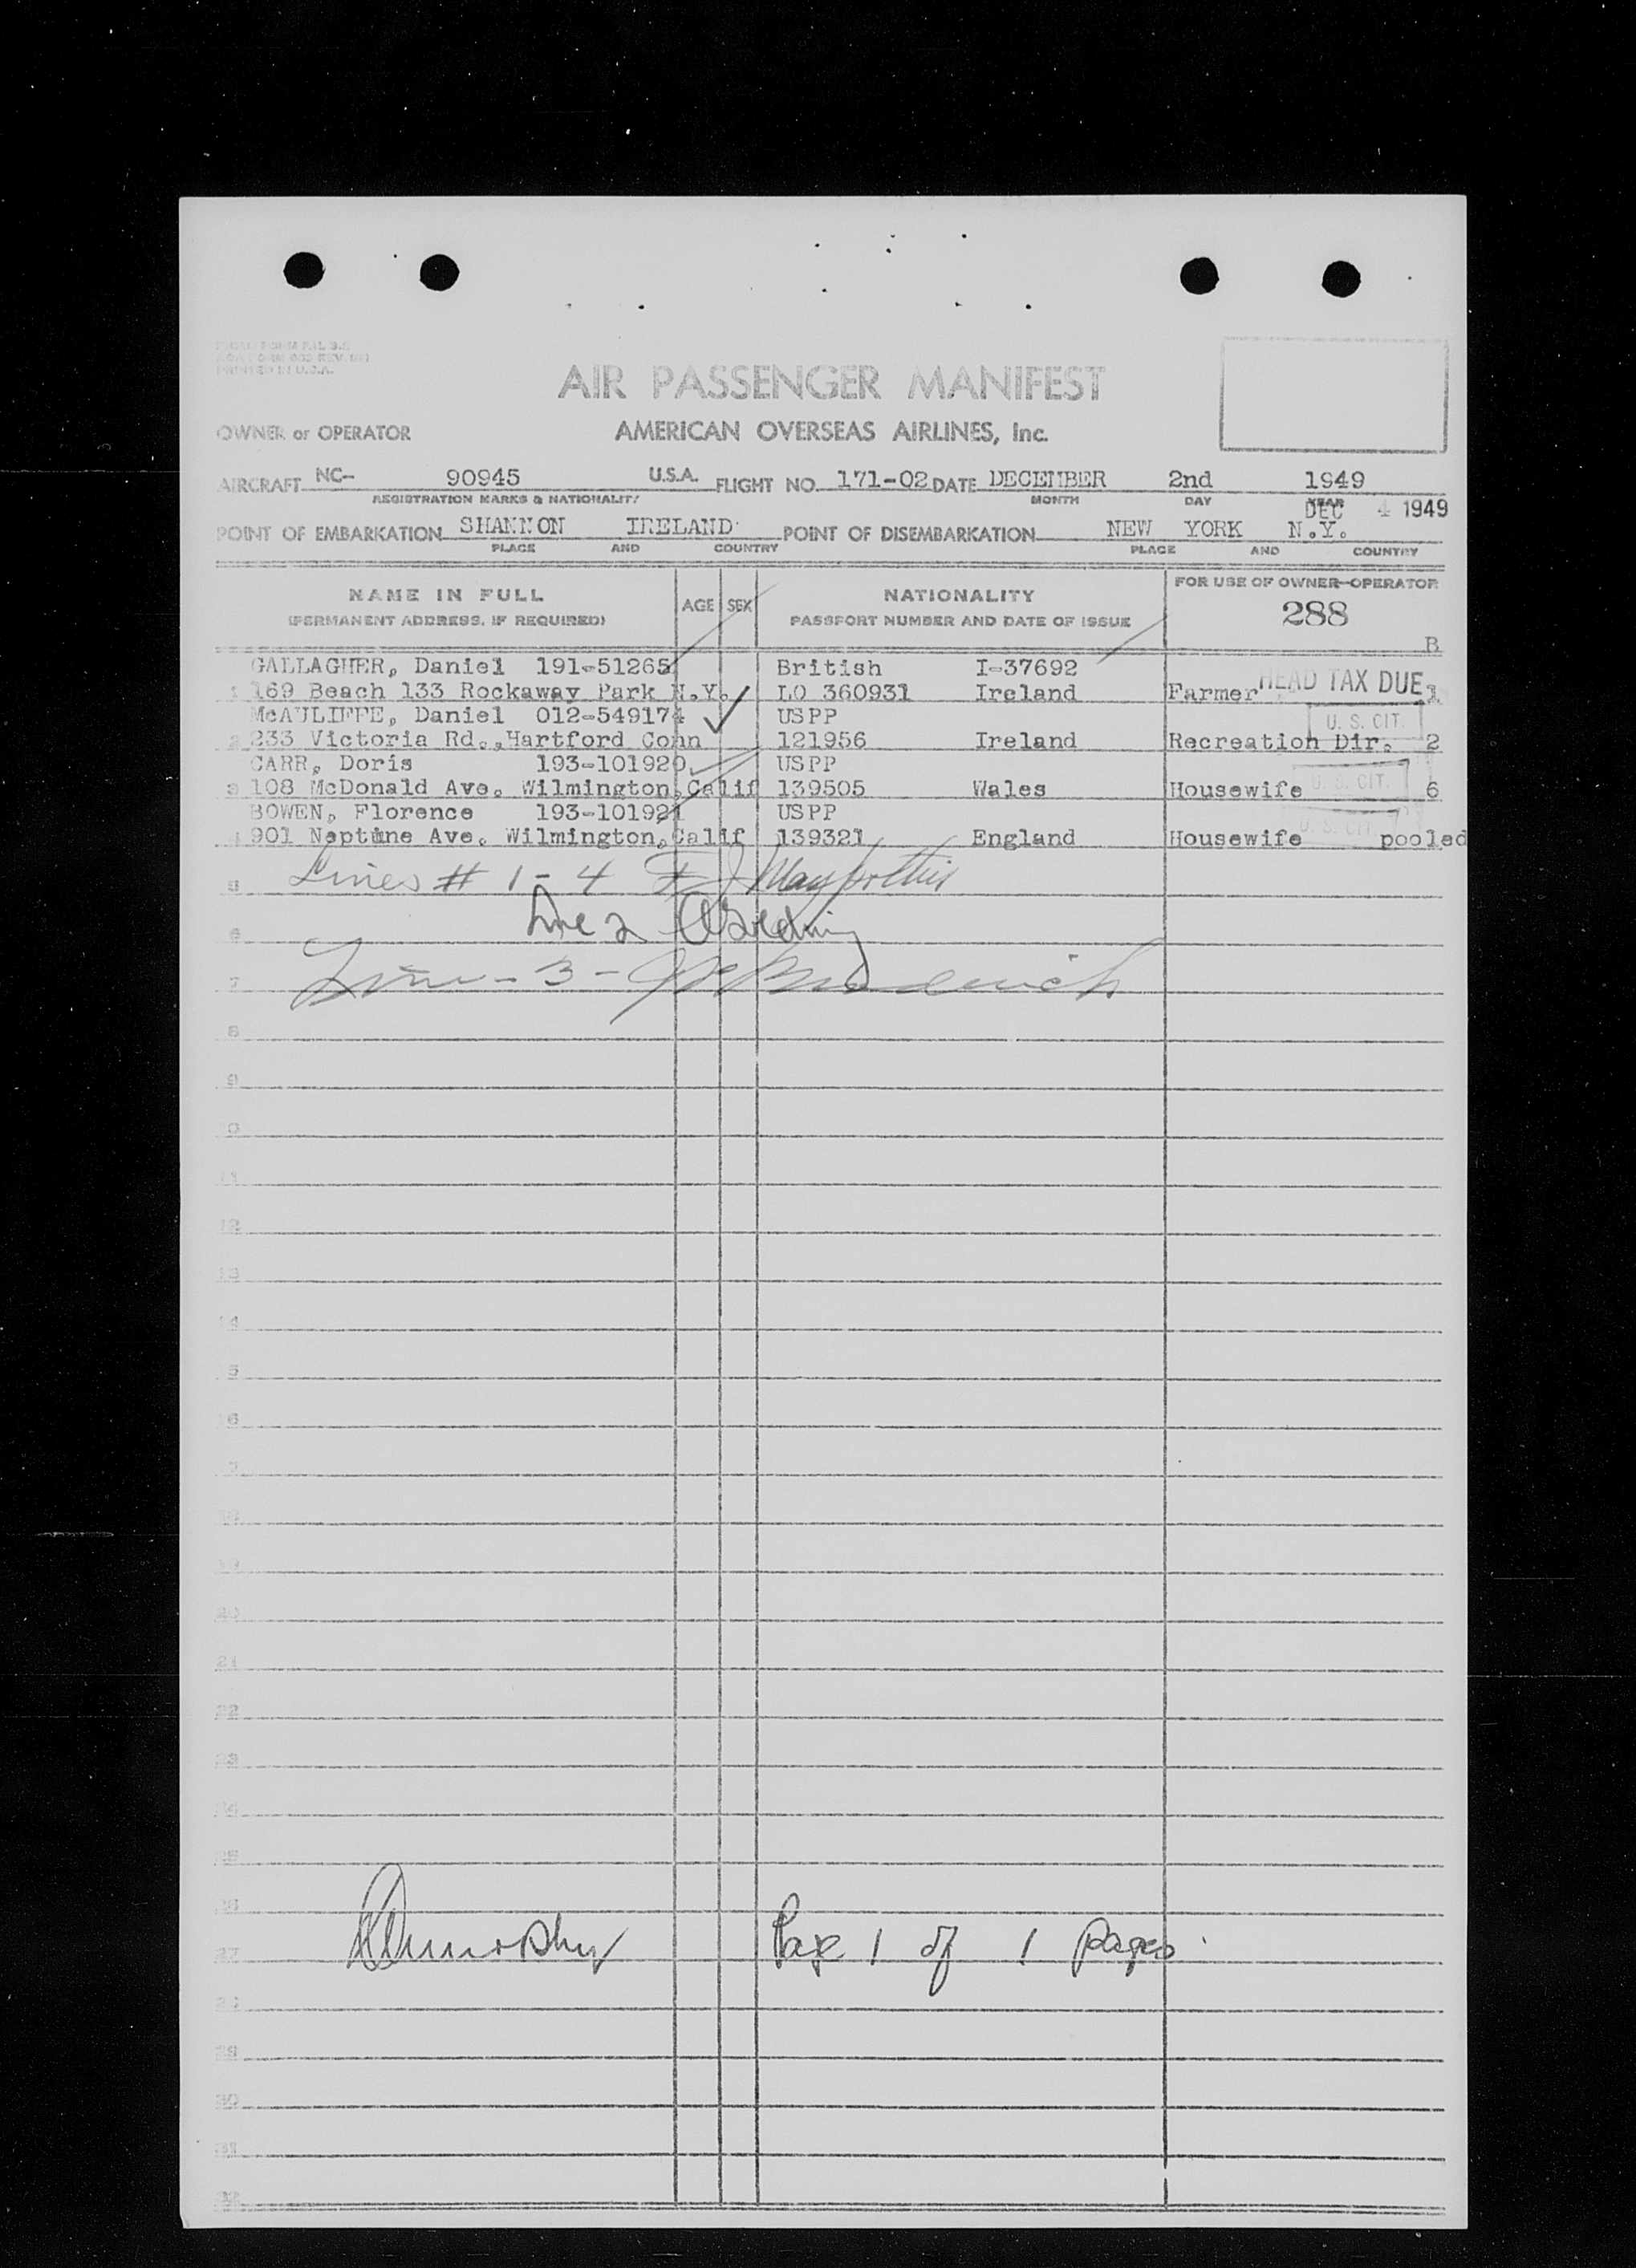 AIR PASSENGER MANIFEST
OWNER or OPERATOR AMERICAN OVERSEAS AIRLINES, Inc.
AIRCRAFT NC- 90945 U.S.A. FLIGHT NO. 171-02 DATE DECEMBER 2nd 1949
REGISTRATION MARKS & NATIONALITY MONTH DAY YEAR
DEC 4 1949
POINT OF EMBARKATION SHANNON IRELAND POINT OF DISEMBARKATION NEW YORK N.Y.
PLACE AND COUNTRY PLACE AND COUNTRY
NAME IN FULL AGE SEX NATIONALITY FOR USE OF OWNER-OPERATOR
(PERMANENT ADDRESS, IF REQUIRED) PASSPORT NUMBER AND DATE OF ISSUE 288
B
GALLAGHER, Daniel 191-51265 British I-37692 HEAD TAX DUE
1 169 Beach 133 Rockaway Park N.Y. LO 360931 Ireland Farmer 1
McAULIFFE, Daniel 012-549174 USPP U.S. CIT.
2 233 Victoria Rd.,Hartford Conn 121956 Ireland Recreation Dir. 2
CARR, Doris 193-101920 USPP U.S. CIT.
3 108 McDonald Ave. Wilmington,Calif 139505 Wales Housewife 6
BOWEN, Florence 193-101921 USPP U.S. CIT.
4 901 Neptune Ave. Wilmington,Calif 139321 England Housewife pooled
5 Lines # 1 - 4
6 Line 2
7 Line - 3 -
8
9
10
11
12
13
14
15
16
17
18
19
20
21
22
23
24
25
26
27 Page 1 of 1 pages
28
29
30
31
32